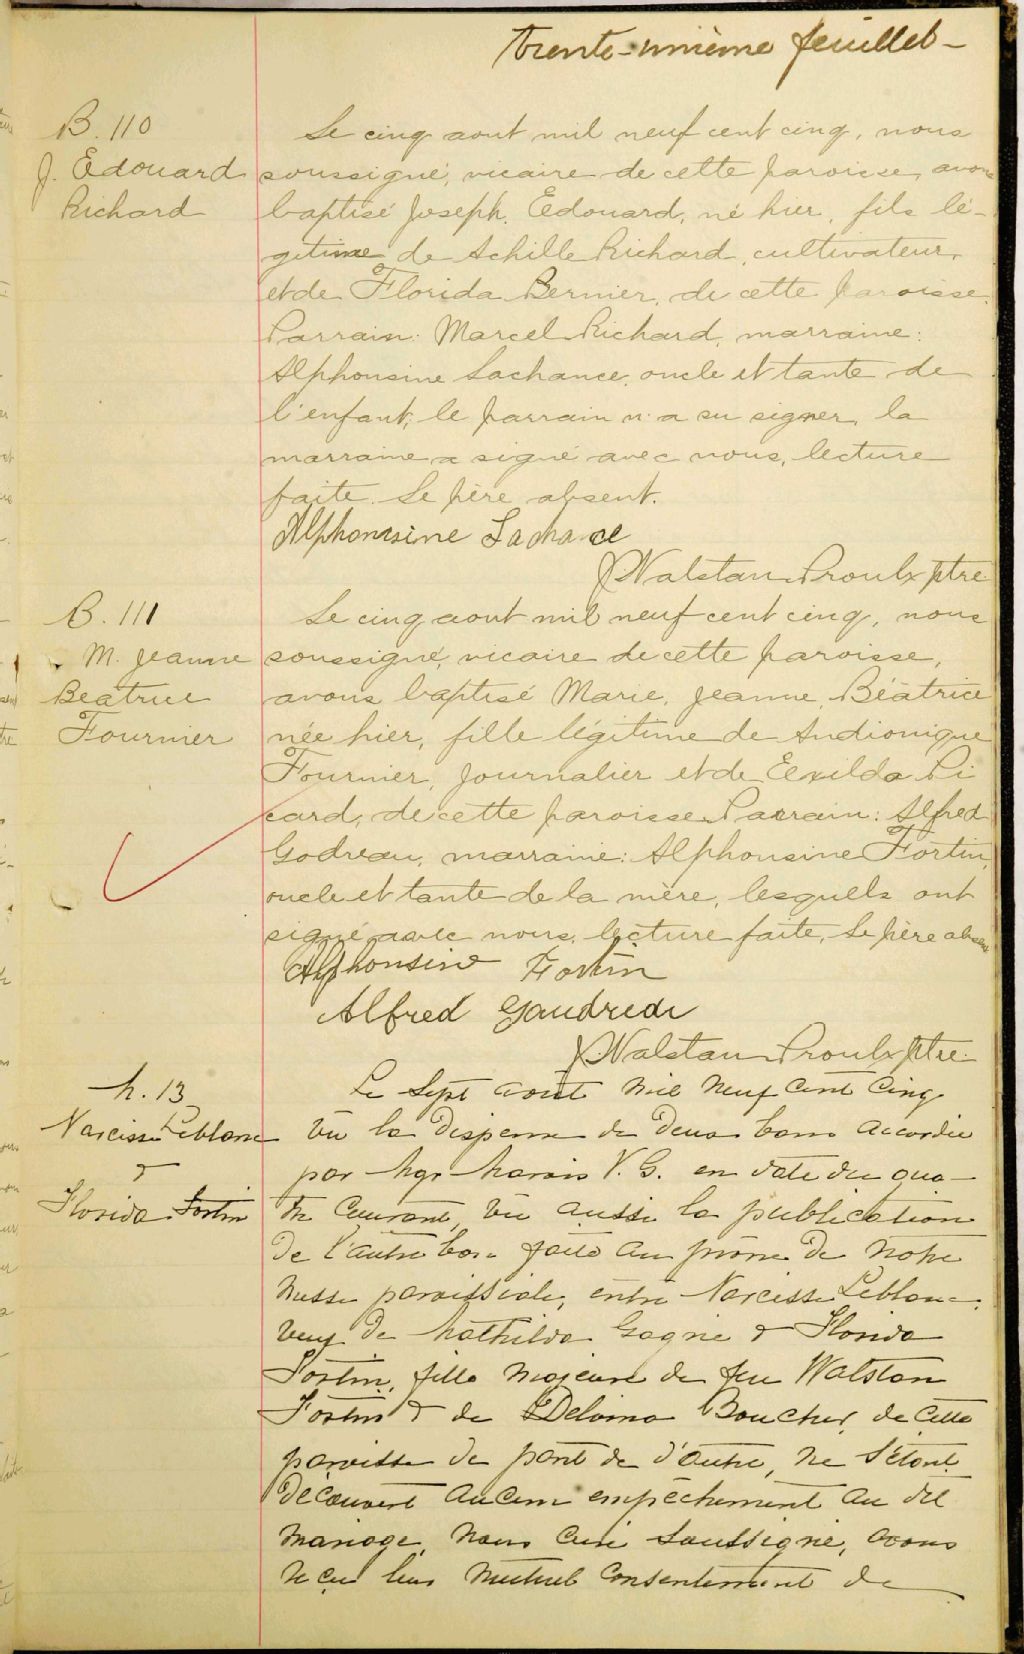 Trente-unième feuillet-
B. 110
J. Edouard
Richard
Le cinq aout mil neuf cent cinq, nous
soussigné, vicaire de cette paroisse, avons
baptisé Joseph, Edouard, né hier, fils lé-
gitime de Achille Richard, cultivateur,
et de Florida Bernier, de cette paroisse.
Parrain: Marcel Richard, marraine:
Alphonsine Lachance, oncle et tante de
l'enfant, le parrain n'a su signer, la
marraine a signé avec nous, lecture
faite. Le père absent.
Alphonsine Lachance
J. Walstan Proulx ptre
B. 111
M. Jeanne
Beatrice
Fournier
Le cinq aout mil neuf cent cinq, nous
soussigné, vicaire de cette paroisse,
avons baptisé Marie, Jeanne, Béatrice
née hier, fille légitime de Andionique
Fournier, journalier et de Exilda Pi
card, de cette paroisse. Parrain: Alfred
Godreau, marraine: Alphonsine Fortin,
oncle et tante de la mère, lesquels ont
signé avec nous, lecture faite, Le père absent
Alphonsine Fortin
Alfred Gaudreau
J. Walstan Proulx ptre.
M. 13
Narcisse Leblanc
&
Florida Fortin
Le Sept août mil neuf cent cinq
vu la dispense de deux bans accordée
par Mgr Marois V. G. en date du qua-
tre courant, vu aussi la publication
de l'autre ban faite au prône de notre
messe paroissiale, entre Narcisse Leblanc,
veuf de Mathilda Gagné & Florida
Fortin, fille majeure de feu Walstan
Fortin & de Delvina Boucher, de cette
paroisse de part & d'autre, ne s'étant
découvert aucun empêchement au dit
mariage, nous curé soussigné, avons
reçu leur mutuel consentement de